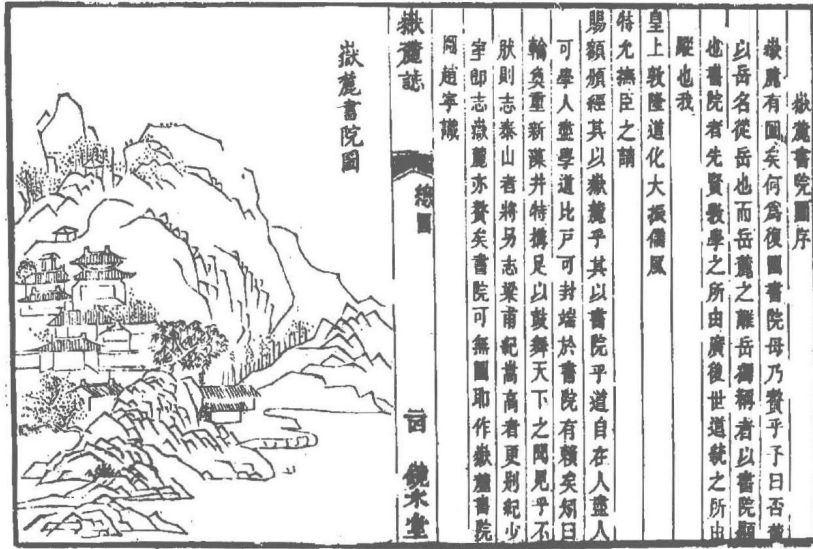 嶽麓書院圖序
嶽麓有圖矣何為復圖書院毋乃贅乎予曰否蓋
以岳名從岳也而岳麓之離岳獨稱者以書院顯
也書院者先賢教學之所由廣後世道統之所由
蹤也我
皇上敦隆道化大振儒風
特允撫臣之請
賜額頒經其以嶽麓乎其以書院乎道自在人盡人
可學人盡學道比戶可封端於書院有賴矣矧曰
輪奐重新藻井特搆足以鼓舞天下之聞見乎不
然則志泰山者將另志梁甫紀嵩高者更別紀少
室即志嶽麓亦贅矣書院可無圖耶作嶽麓書院
圖趙寧識
嶽麓誌
總圖
鏡水堂
嶽麓書院圖